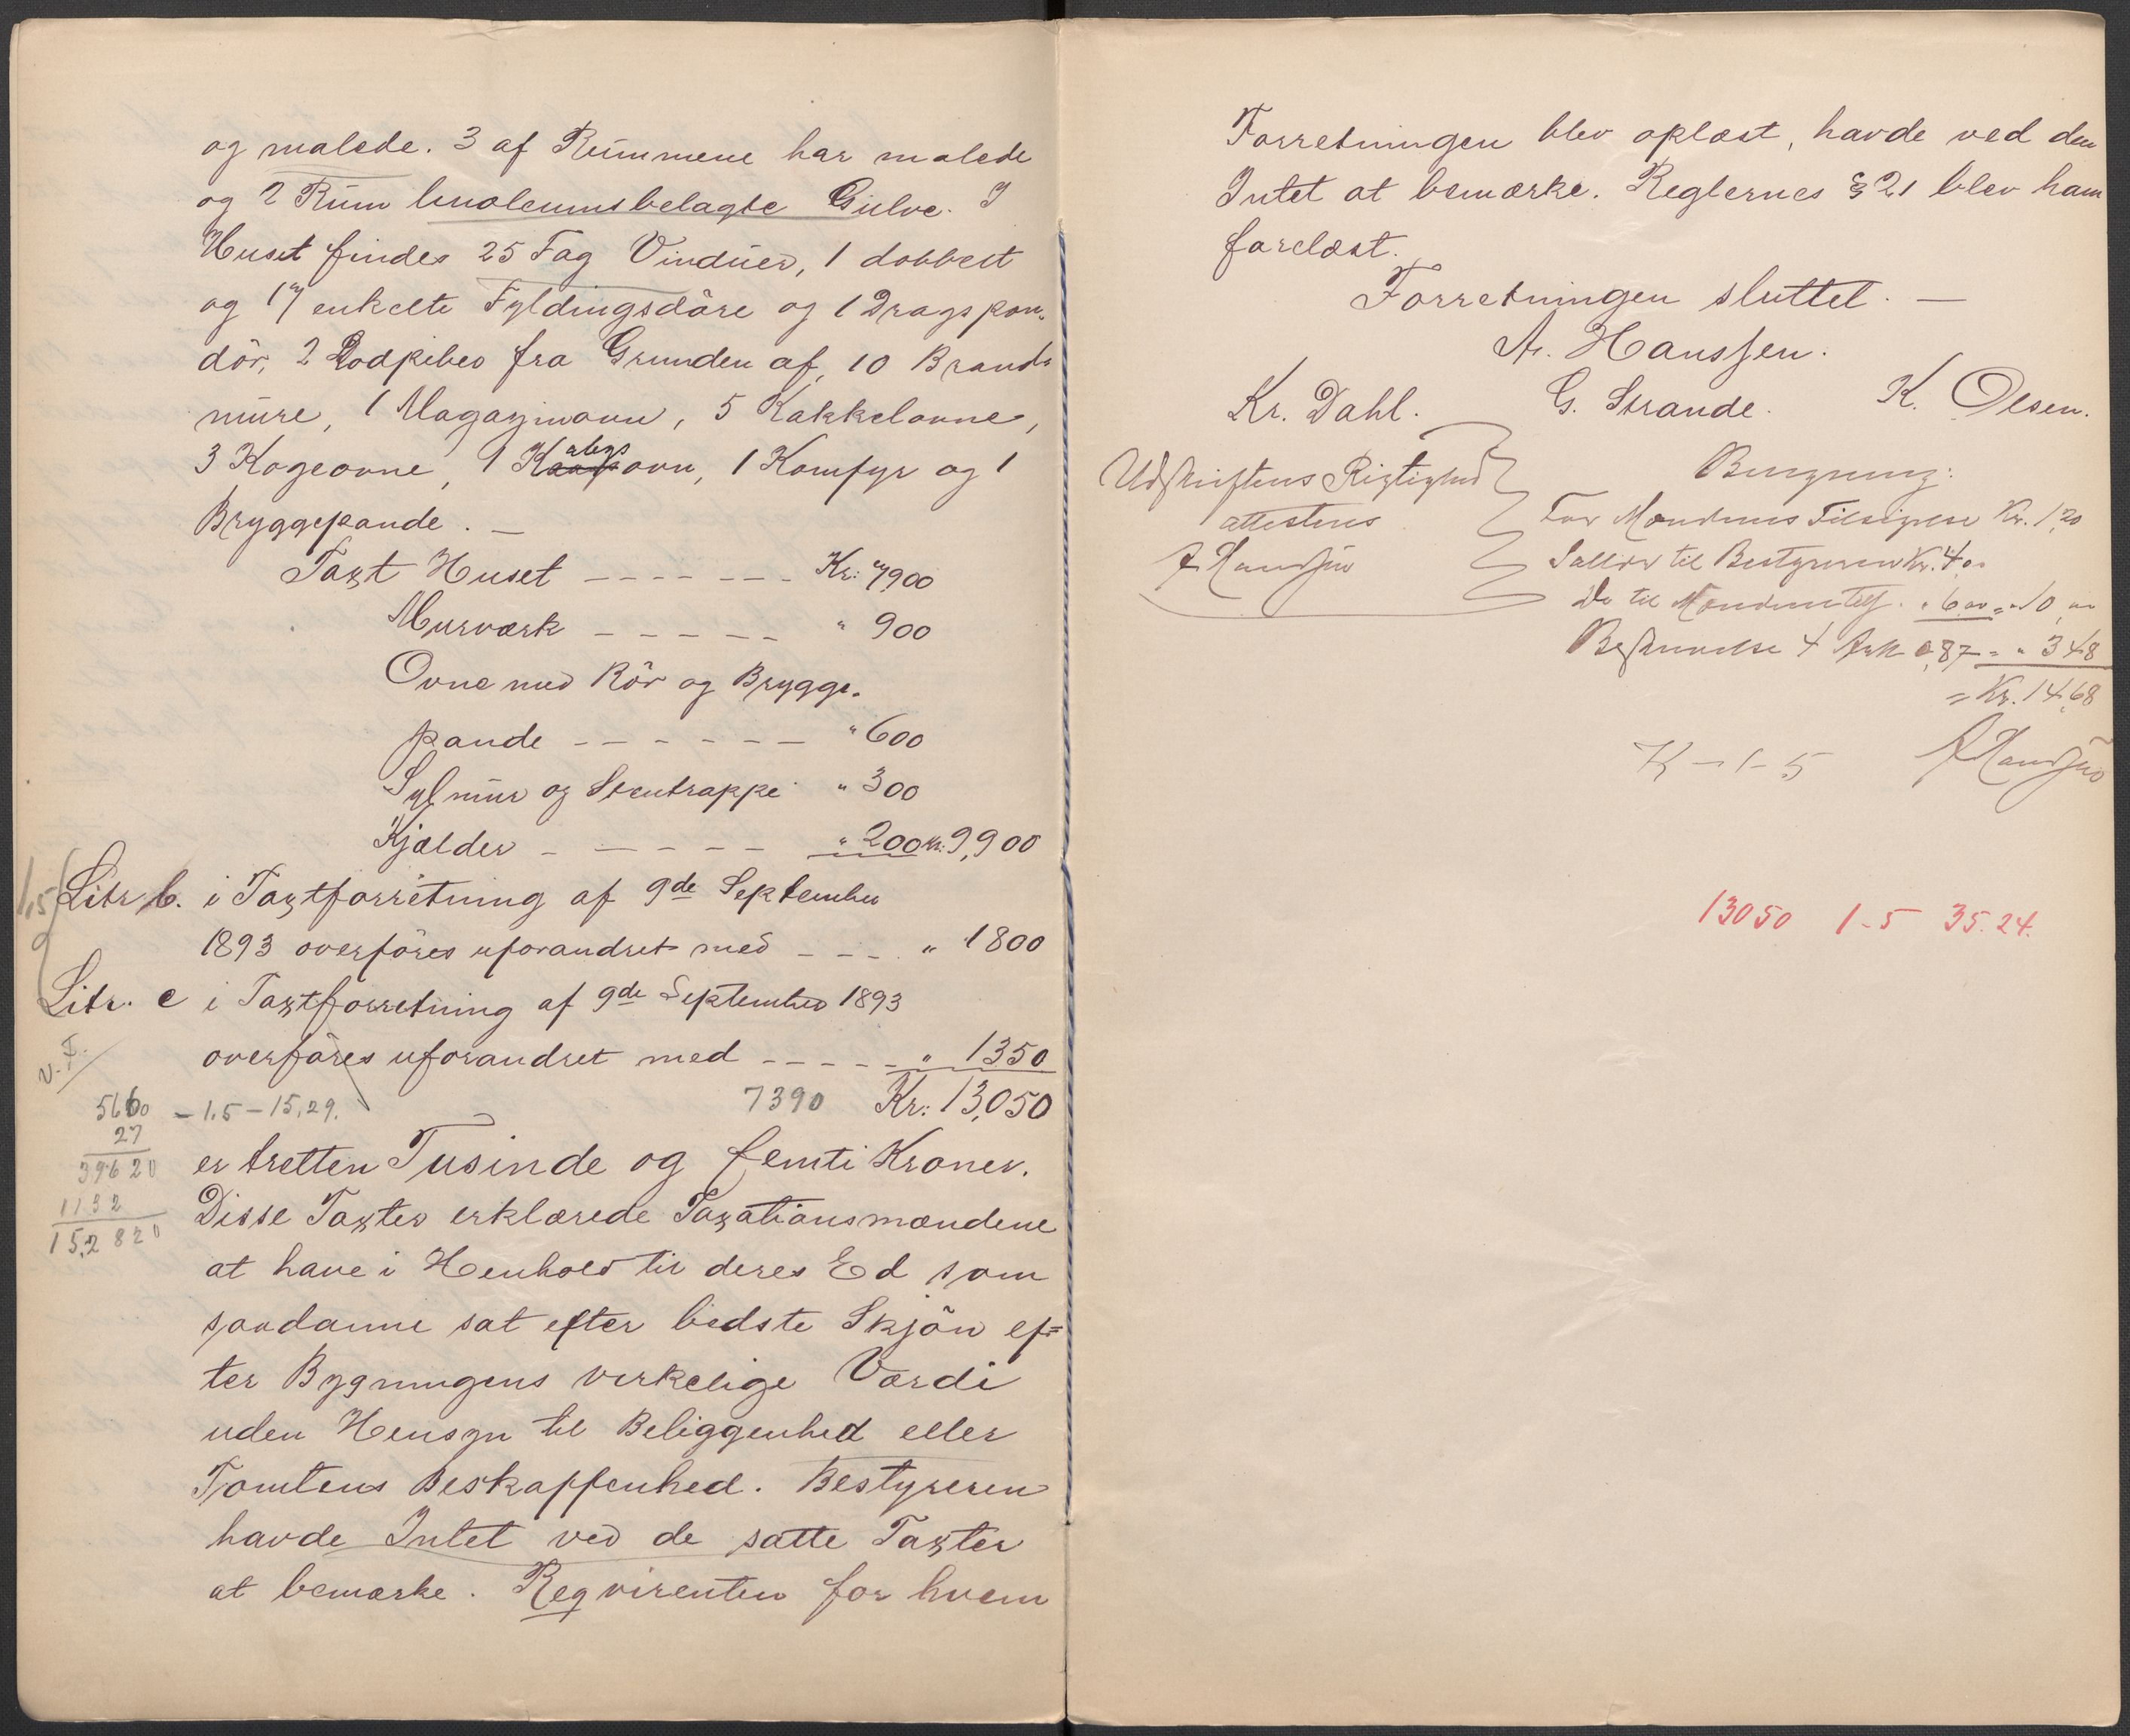 og malede. 3 af Rummene har malede
og 2 Rum linoleumsbelagte Gulve. I
Huset findes 25 Fag Vinduer, 1 dobbelt
og 17 enkelte Fyldingsdöre og 1 Dragspan-
dör, 2 Rodpiber fra Grunden af, 10 Brand-
mure, 1 Magazinovn, 5 Kakkelovne,
3 Kogeovne, 1 Kabysovn, 1 Komfyr og 1
Bryggepande. —
Taxt Huset - - - - - - - Kr: 7,900
Murværk - - - - - " 900
Ovne med Rör og Brygge-
pande - - - - - - " 600
Sylmur og Stentrappe " 300
Kjælder - - - - - " 200 Kr: 9,900
Litr b. i Taxtforretning af 9de September
1893 overföres uforandret med - - - " 1800
Litr. c i Taxtforretning af 9de September 1893
overföres uforandret med - - - - - " 1350
7390 Kr: 13,050
er tretten Tusinde og femti Kroner.
Disse Taxter erklærede Taxationsmændene
at have i Henhold til deres Ed som
saadanne sat efter bedste Skjön ef=
ter Bygningens virkelige Værdi
uden Hensyn til Beliggenhed eller
Tomtens Beskaffenhed. Bestyreren
havde Intet ved de satte Taxter
at bemærke. Reqvirenten for hvem
1.5
9
v. F.
5660 - 1.5 - 15,29.
27
39620
1132
15,2820
Forretningen blev oplæst, havde ved den
Intet at bemærke. Reglernes § 21 blev ham
forelæst.
Forretningen sluttet. —
A. Hanssen.
Kr. Dahl. G. Strande. K. Olsen.
Udskriftens Rigtighed
attesteres
A Hanssen
Beregning:
For Mændenes Tilsigelse Kr. 1,20
Sallær til Bestyreren Kr. 4,00
Do til Mændene " 6,00 = " 10,00
Beskrivelse 4 Ark 0,87 = " 3 48
= Kr. 14,68
A Hanssen
K - 1 - 5
13050 1-5 35.24.